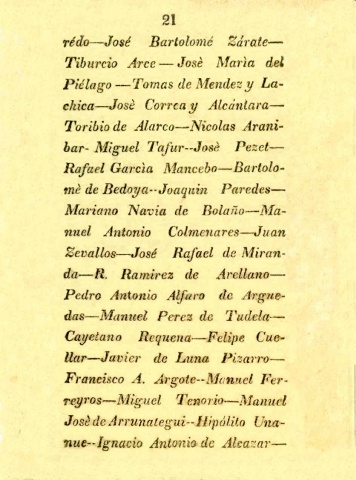 21
rédo—José Bartolomé Zárate—
Tiburcio Arce—Josè Marìa del
Piélago—Tomas de Mendez y La-
chica—Josè Correa y Alcántara—
Toribio de Alarco—Nicolas Arani-
bar- Miguel Tafur--Josè Pezet—
Rafael Garcìa Mancebo—Bartolo-
mè de Bedoya--Joaquin Paredes—
Mariano Navia de Bolaño—Ma-
nuel Antonio Colmenares—Juan
Zevallos—José Rafael de Miran-
da—R. Ramirez de Arellano—
Pedro Antonio Alfaro de Argue-
das—Manuel Perez de Tudela—
Cayetano Requena—Felipe Cue-
llar—Javier de Luna Pizarro—
Francisco A. Argote--Manuel Fer-
reyros—Miguel Tenorio—Manuel
Josè de Arrunategui--Hipólito Una-
nue--Ignacio Antonio de Alcazar—